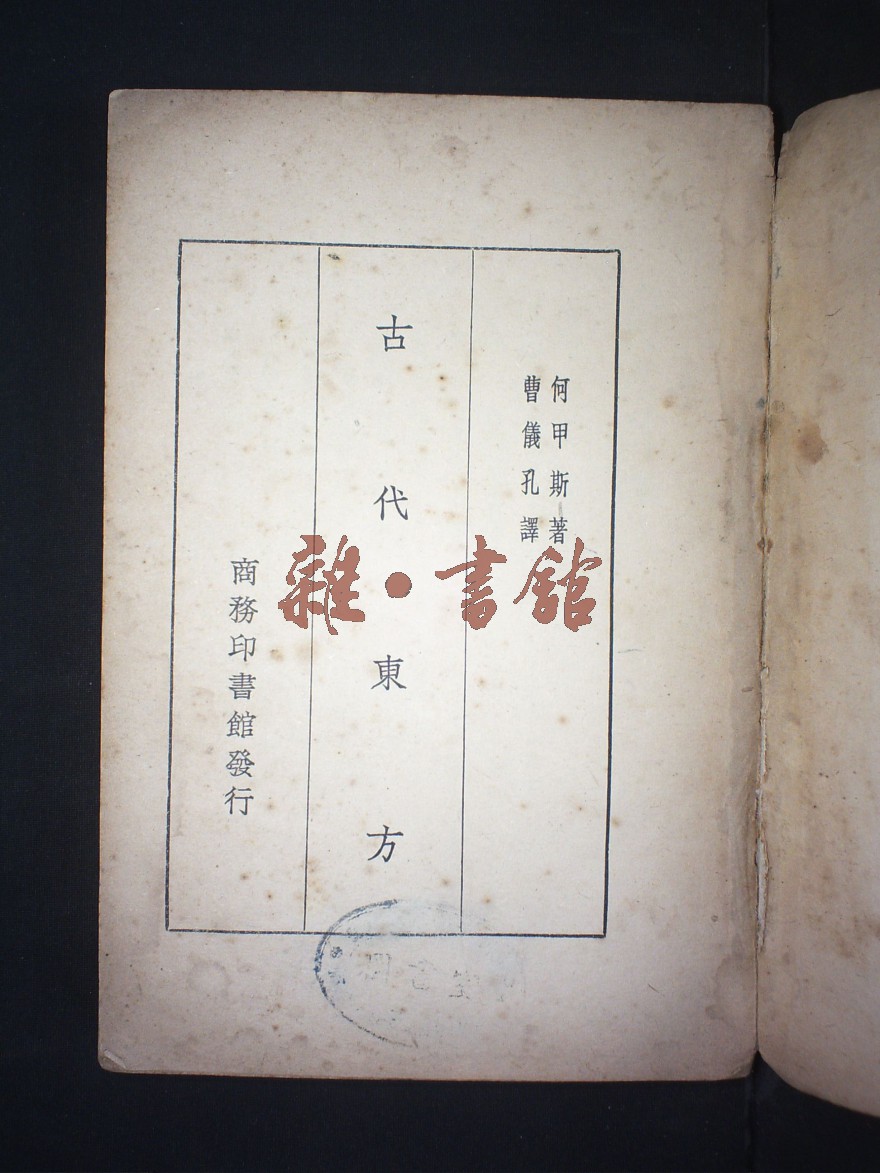 何甲斯著
曹儀孔譯
古代東方
商務印書館發行
雜·書館